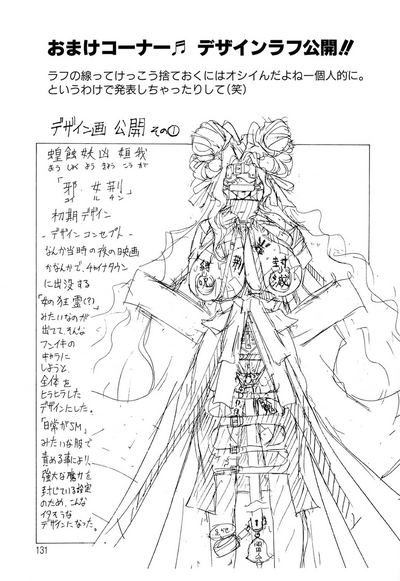 おまけコーナー♬ デザインラフ公開!!
ラフの線ってけっこう捨ておくにはオシイんだよね―個人的に。
というわけで発表しちゃったりして(笑)
デザイン画 公開 その①
蝗蝕妖凶 姮我
おうしょくようきょう こうが
「邪 女荊」
初期デザイン
-デザインコンセプト-
なんか当時の夜の映画
かなんかで、チャイナタウン
に出没する
「女の狂霊(?)」
みたいなのが
出てて、そんな
フンイキの
キャラに
しようと、
全体を
ヒラヒラした
デザインにした。
「日常がSM」
みたいな服で
責める事により、
強大な魔力を
封じている設定
のため、こんな
イタそうな
デザインになった。
縛
呪
荊
封
滅
131